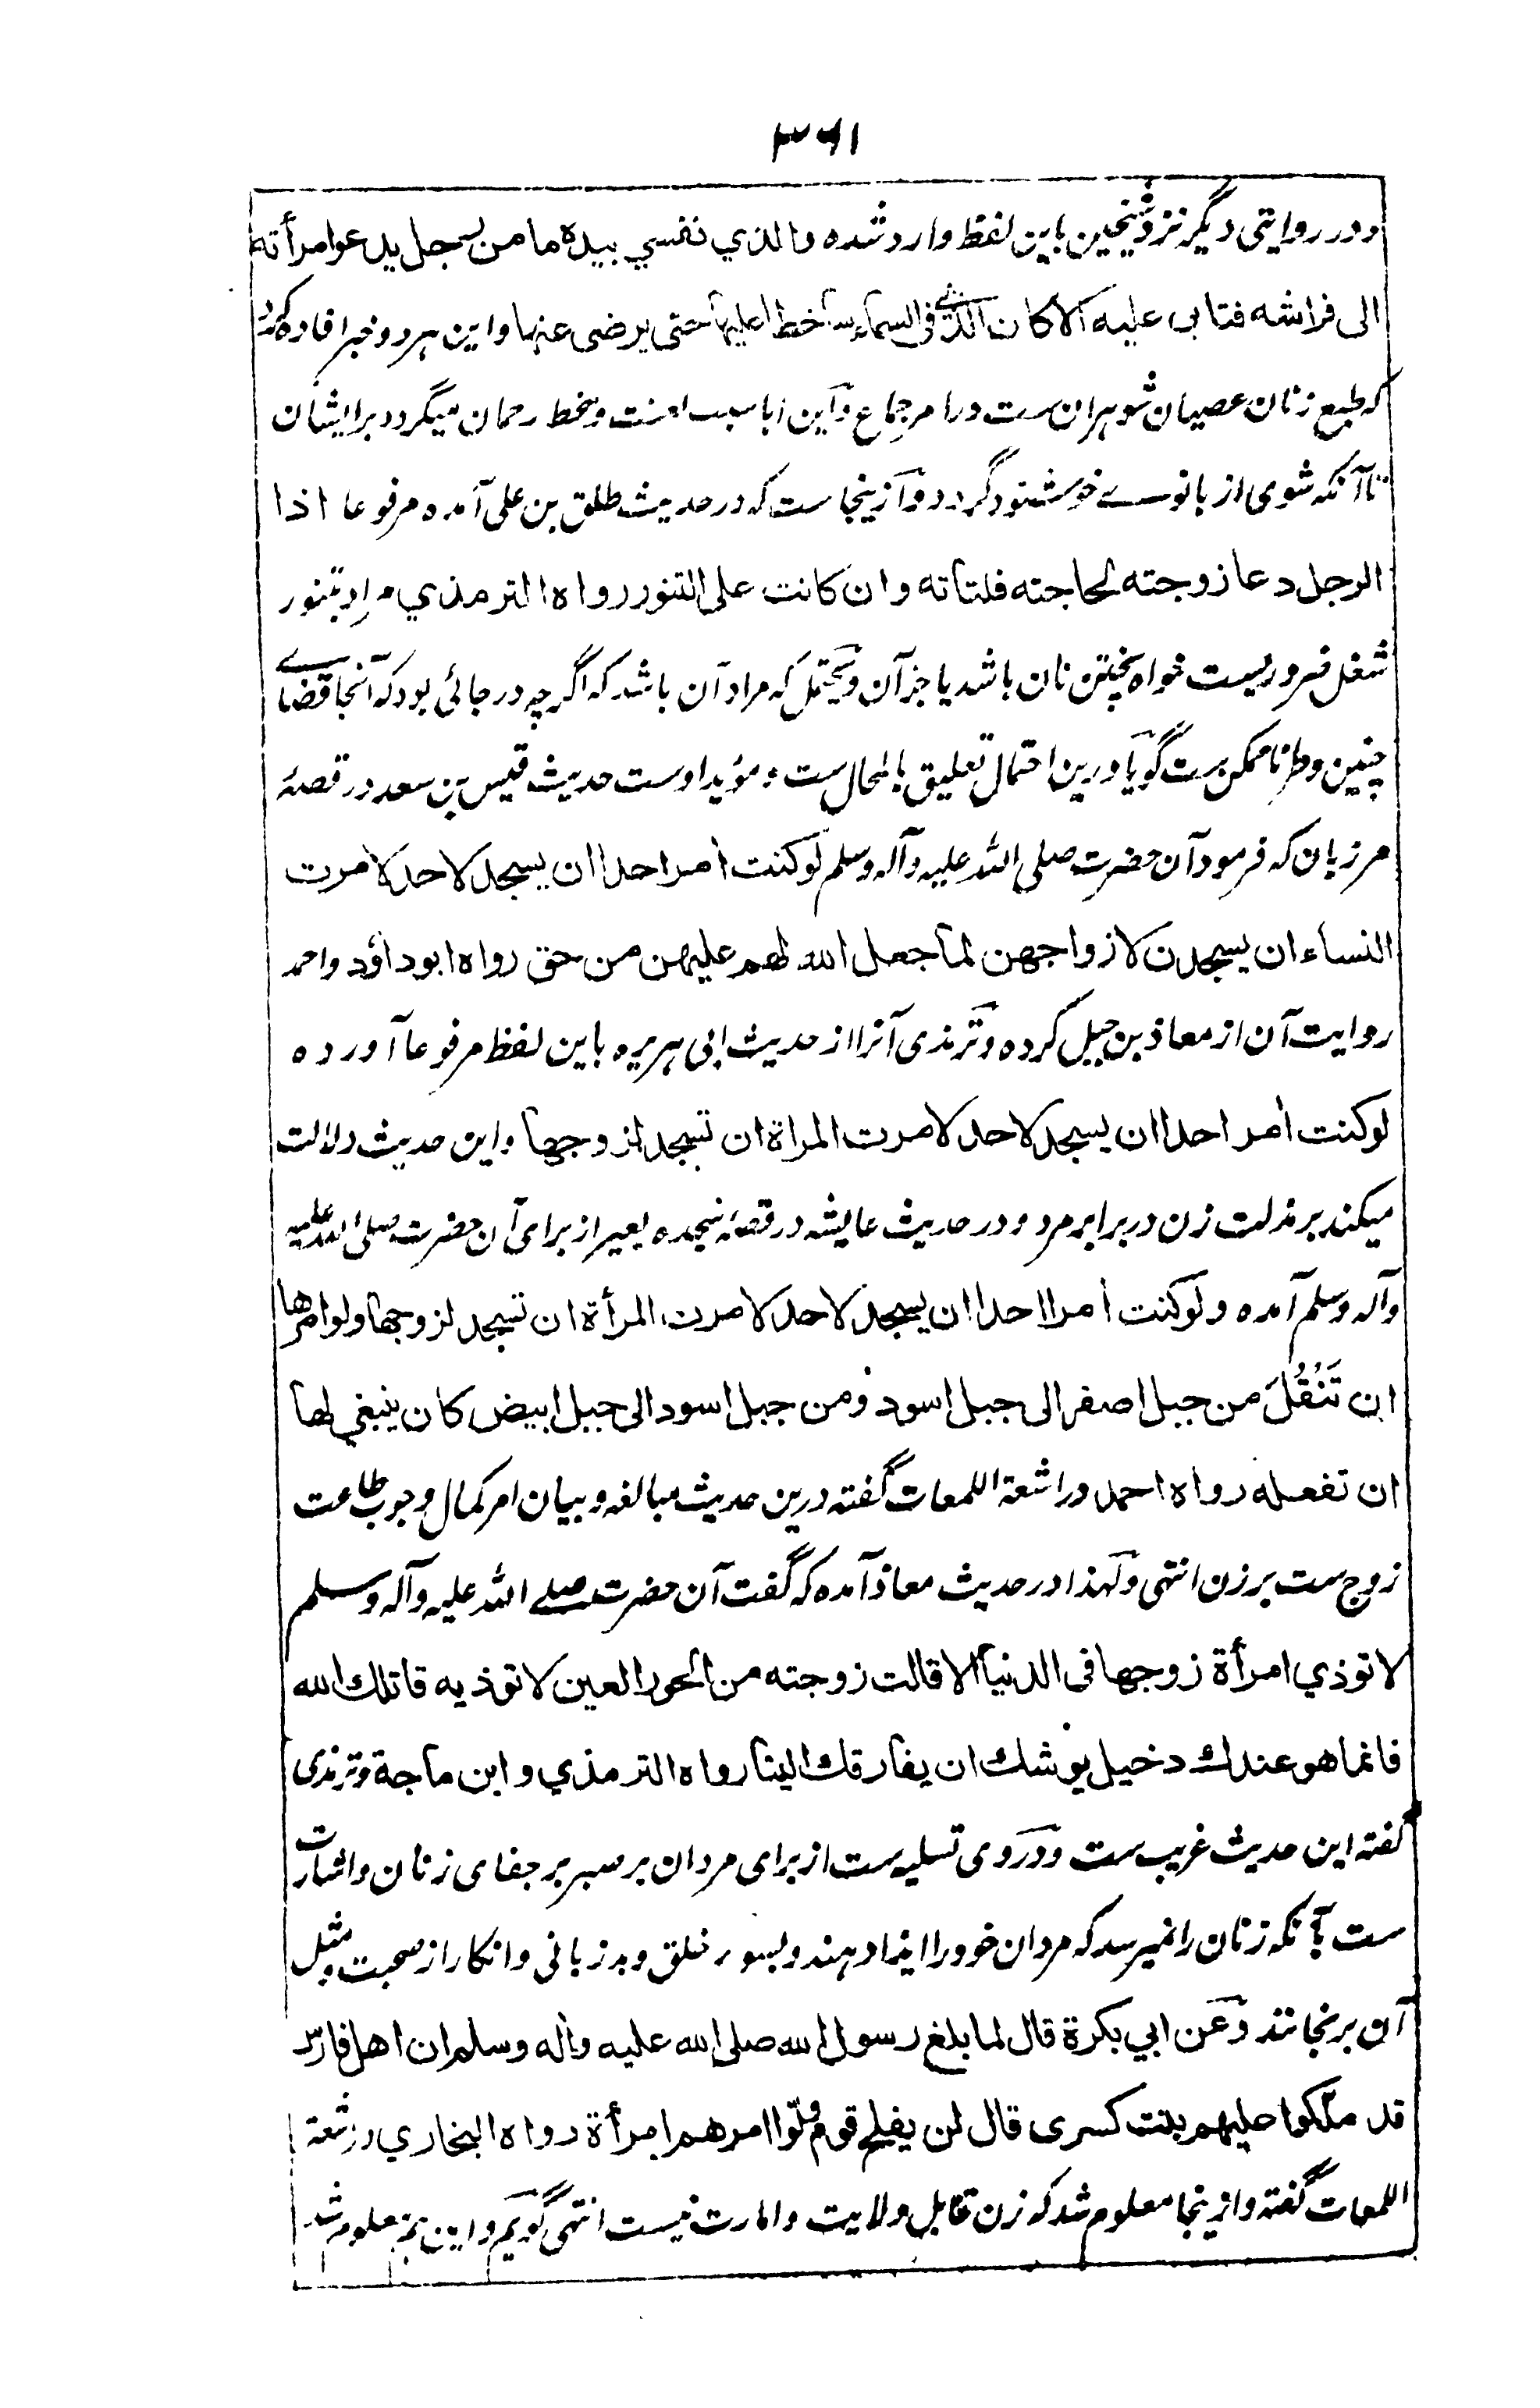 ۳۶۱
ودر روایتی دیگر نزد شیخین باین لفظ وارد شده والذي نفسي بیده مامن رجل یدعوامرأته
الی فراشه فتابی علیه الاکان الذی فی السماء ساخطا علیها حتی یرضی عنها واین هر دو خبر افاده کرد
که طبع زنان عصیان شوهران ست در امر جماع واین ابا سبب لعنت وسخط رحمان میگردد برایشان
تا آنکه شوی از بانوے خوشنود گردد وازینجاست که در حدیث طلق بن علی آمده مرفوعا اذا
الرجل دعا زوجته لحاجته فلتاته وان کانت علی التنور رواه الترمذي مراد بتنور
شغل ضروریست خواه پختن نان باشد یا جز آن ویحتمل که مراد آن باشد که اگرچه در جائی بود که آنجا قضاے
چنین وطر ناممکن ست گویا درین احتمال تعلیق بالمحال ست ومؤید اوست حدیث قیس بن سعد در قصهٔ
مرزبان که فرمود آن حضرت صلی الله علیه وآله وسلم لوکنت امر احدا ان یسجد لاحد لامرت
النساء ان یسجدن لازواجهن لما جعل الله لهم علیهن من حق رواه ابوداؤد واحمد
روایت آن از معاذ بن جبل کرده وترمذی آنرا از حدیث ابی هریره باین لفظ مرفوعا آورده
لوکنت امر احدا ان یسجد لاحد لامرت المراة ان تسجد لزوجها واین حدیث دلالت
میکند بر مذلت زن در برابر مرد ودر حدیث عایشه در قصهٔ سجده بعیر از برای آن حضرت صلی الله علیه
وآله وسلم آمده ولوکنت امرا احدا ان یسجد لاحد لامرت المرأة ان تسجد لزوجها ولو امرها
ان تَنْقُلَ من جبل اصفر الی جبل اسود ومن جبل اسود الی جبل ابیض کان ینبغي لها
ان تفعله رواه احمد در اشعة اللمعات گفته درین حدیث مبالغه وبیان امر کمال وجوب طاعت
زوج ست بر زن انتهی ولهذا در حدیث معاذ آمده که گفت آن حضرت صلے الله علیه وآله وسلم
لاتوذي امرأة زوجها فی الدنیا الا قالت زوجته من الحور العین لاتوذیه قاتلك الله
فانما هو عندك دخیل یوشك ان یفارقك الینا رواه الترمذي وابن ماجة وترمذی
گفته این حدیث غریب ست ودروی تسلیه ست از برای مردان بر صبر بر جفای زنان واشارت
ست بآنکه زنان را نمیرسد که مردان خود را ایذا دهند وبسوء خلق وبد زبانی وانکار از صحبت ومثل
آن برنجانند وعن ابي بکرة قال لما بلغ رسول الله صلی الله علیه واٰله وسلم ان اهل فارس
قد ملّکوا علیهم بنت کسری قال لن یفلح قوم ولّوا امرهم امرأة رواه البخاري در اشعة
اللمعات گفته وازینجا معلوم شد که زن قابل ولایت وامارت نیست انتهی گویم واین نیز معلوم شد